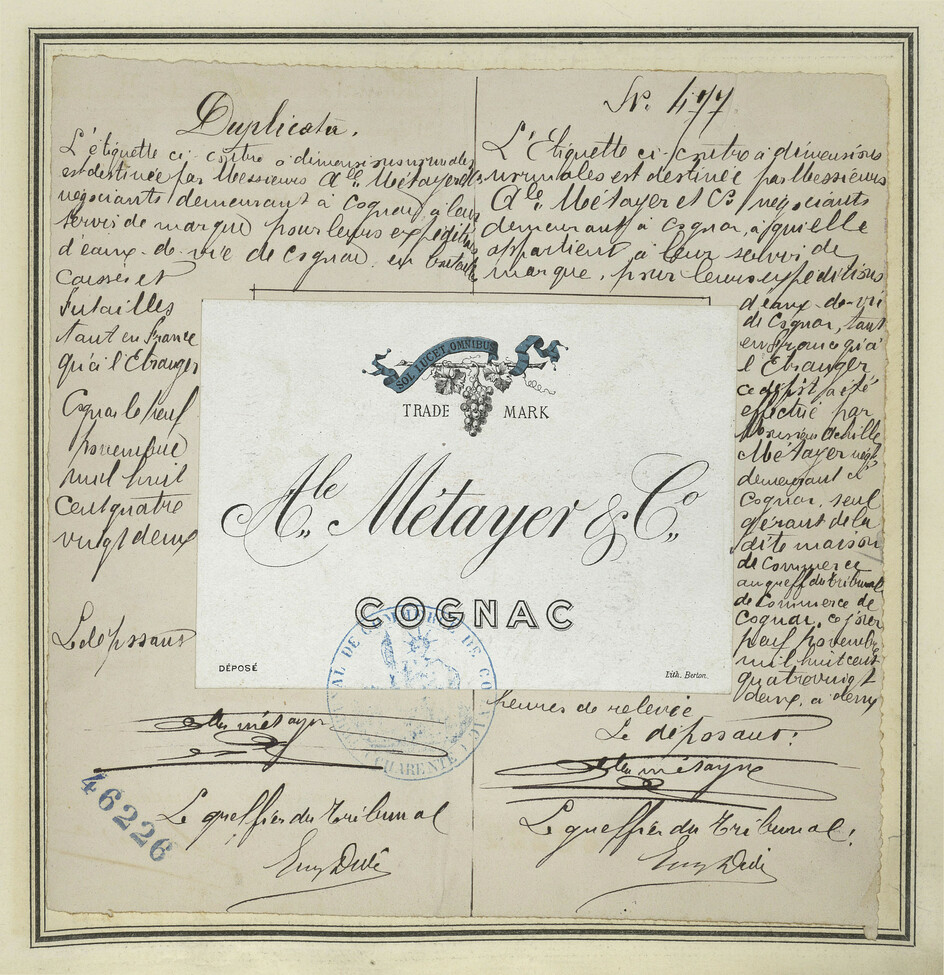 Duplicata.
L'étiquette ci-contre à dimensions normales
est destinée par Messieurs Ale. Métayer et Co.
négociants demeurant à Cognac, à leur
servir de marque pour leurs expéditions
d'eaux-de-vie de Cognac, en bouteilles
Caisses et
Futailles
tant en France
qu'à l'Etranger
Cognac le neuf
Novembre
mil huit
cent quatre
vingt deux
Le déposant
Ale Métayer
46226
Le greffier du Tribunal
No. 477
L'Etiquette ci-contre à dimensions
normales est destinée par Messieurs
Ale. Métayer et Co. négociants
demeurant à Cognac, à qui elle
appartient à leur servir de
marque, pour leurs expéditions
d'eaux-de-vie
de Cognac, tant
en France qu'à
l'Etranger
ce dépôt a été
effectué par
Monsieur Achille
Métayer négt
demeurant à
Cognac, seul
gérant de la
dite maison
de Commerce
au greffe du tribunal
de Commerce de
Cognac, ce jour
neuf novembre
mil huit cent
quatrevingt
deux, à deux
heures de relevée
Le déposant:
Ale Métayer
Le greffier du Tribunal.
SOL LUCET OMNIBUS
TRADE MARK
Ale. Métayer & Co.
COGNAC
DÉPOSÉ
Lith. Berton.
TRIBUNAL DE COMMERCE DE COGNAC
CHARENTE